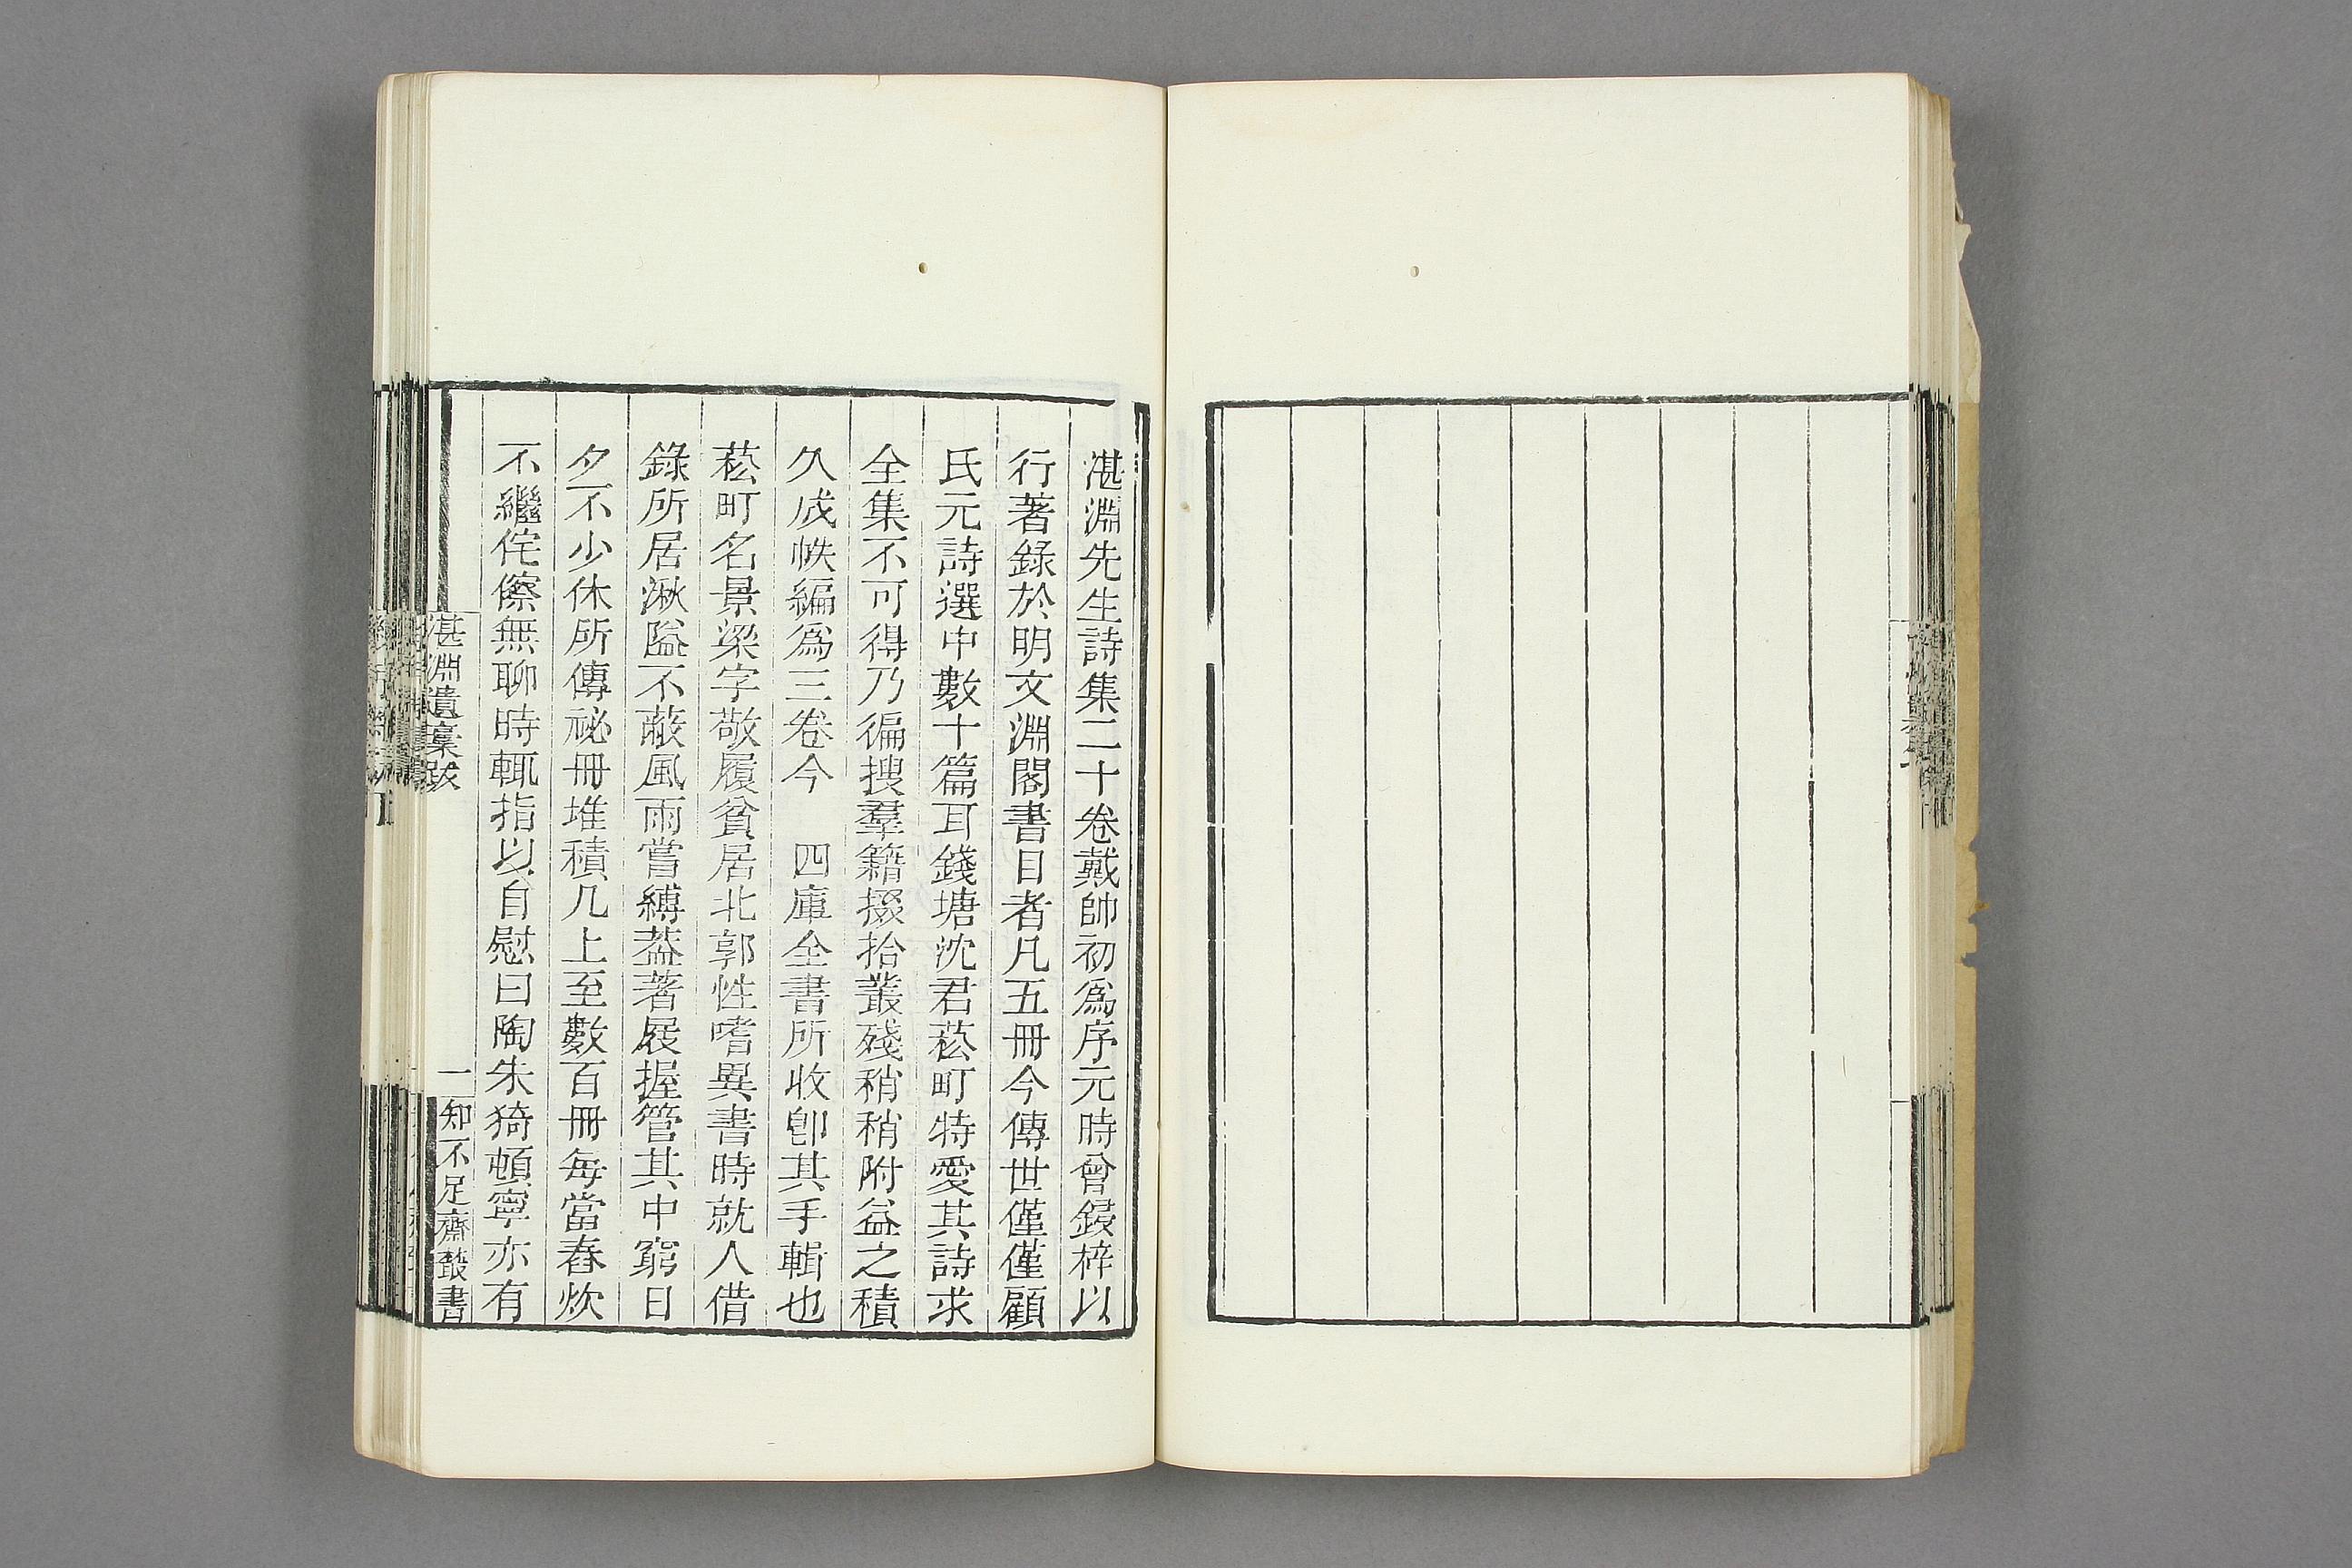 湛淵先生詩集二十卷戴帥初爲序元時曾鋟梓以
行著錄於明文淵閣書目者凡五冊今傳世僅僅顧
氏元詩選中數十篇耳錢塘沈君菘町特愛其詩求
全集不可得乃徧搜羣籍掇拾叢殘稍稍附益之積
久成帙編爲三卷今　四庫全書所收卽其手輯也
菘町名景梁字敬履貧居北郭性嗜異書時就人借
錄所居湫隘不蔽風雨嘗縛葢著屐握管其中窮日
夕不少休所傳祕冊堆積几上至數百冊每當舂炊
不繼侘傺無聊時輒指以自慰曰陶朱猗頓寧亦有
湛淵遺稾跋
一
知不足齋叢書